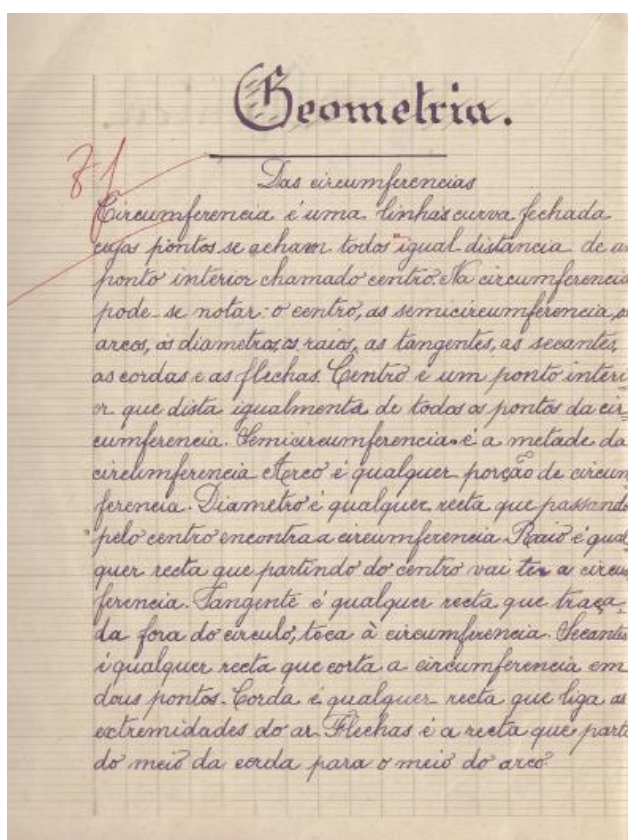 Geometria.
Das circumferencias
Circumferencia é uma linhas curva fechada
cujos pontos se acham todos igual distancia de u
ponto interior chamado centro. Na circumferencia
pode-se notar: o centro, as semicircumferencia, o
arcos, os diametros, os raios, as tangentes, as secantes,
as cordas e as flechas. Centro é um ponto interi=
or que dista igualmenta de todos os pontos da cir=
cumferencia. Semicircumferencia é a metade da
circumferencia Arco é qualquer porção de circum
ferencia. Diametro é qualquer recta que passando
pelo centro encontra a circumferencia. Raio é qual
quer recta que partindo do centro vai ter a circum
ferencia. Tangente é qualquer recta que traça_
da fora do circulo, toca à circumferencia. Secante
é qualquer recta que corta a circumferencia em
dous pontos. Corda é qualquer recta que liga as
extremidades do ar. Flechas é a recta que parte
do meio da corda para o meio do arco